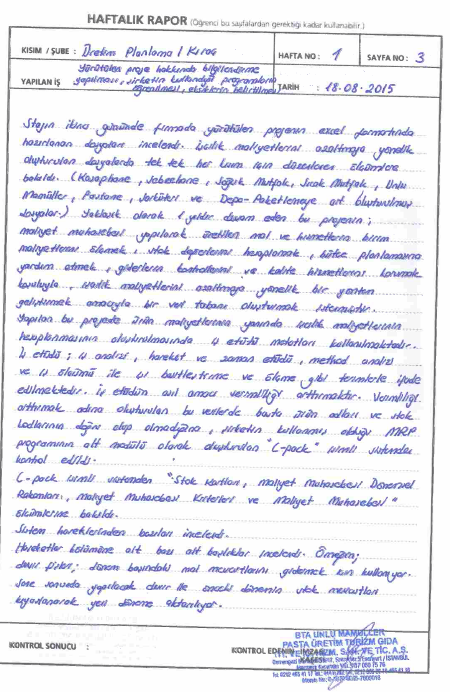 HAFTALIK RAPOR (Öğrenci bu sayfalardan gerektiği kadar kullanabilir.)
KISIM / ŞUBE : Üretim Planlama /
HAFTA NO : 1
SAYFA NO : 3
YAPILAN İŞ
yürütülen proje hakkında bilgilendirme
yapılması, şirketin kullandığı programların
öğrenilmesi, eksiklerin belirtilmesi
TARİH : 18.08.2015
Stajın ikinci gününde firmada yürütülen projenin excel formatında
hazırlanan dosyaları incelendi. İşçilik maliyetlerini azaltmaya yönelik
oluşturulan dosyalarda tek tek her kısım için düzenlenen ölçümlere
bakıldı. (Kasaphane, Sebzehane, Soğuk Mutfak, Sıcak Mutfak, Unlu
Mamüller, Pastane, Şarküteri ve Depo-Paketlemeye ait oluşturulmuş
dosyalar.) Yaklaşık olarak 1 yıldır devam eden bu projenin;
maliyet muhasebesi yapılarak üretilen mal ve hizmetlerin birim
maliyetlerini ölçmek, stok değerlerini hesaplamak, bütçe planlamasına
yardım etmek, giderlerin kontrollerini ve kalite hizmetlerini korumak
koşuluyla, işçilik maliyetlerini azaltmaya yönelik bir yöntem
geliştirmek amacıyla bir veri tabanı oluşturmak istenmiştir.
Yapılan bu projede ürün maliyetlerinin yanında işçilik maliyetlerinin
hesaplanmasının oluşturulmasında iş etüdü metotları kullanılmaktadır.
İş etüdü; iş analizi, hareket ve zaman etüdü, method analizi
ve iş ölçümü ile iş basitleştirme ve ölçme gibi terimlerle ifade
edilmektedir. İş etüdün asıl amacı verimliliği arttırmaktır. Verimliliği
arttırmak adına oluşturulan bu verilerde başta ürün adları ve stok
kodlarının doğru olup olmadığına, şirketin kullanmış olduğu MRP
programının alt modülü olarak oluşturulan "C-pack" isimli sistemden
kontrol edildi.
C-pack isimli sistemden "Stok Kartları, Maliyet Muhasebesi Dönemsel
Rakamları, Maliyet Muhasebesi Kriterleri ve Maliyet Muhasebesi"
ölçümlerine bakıldı.
Sistem hareketlerinden bazıları incelendi.
Hareketler bölümüne ait bazı alt başlıklar incelendi. Örneğin;
devir fişleri; dönem başındaki mal mevcutlarını gidermek için kullanıyor.
Sene sonunda yapılacak devir ile önceki dönemin stok mevcutları
kıyaslanarak yeni döneme aktarılıyor.
KONTROL SONUCU :
KONTROL EDENİN İMZASI
BTA UNLU MAMULLER
PASTA ÜRETİM TURİZM GIDA
SAN. VE TİC. A.Ş.